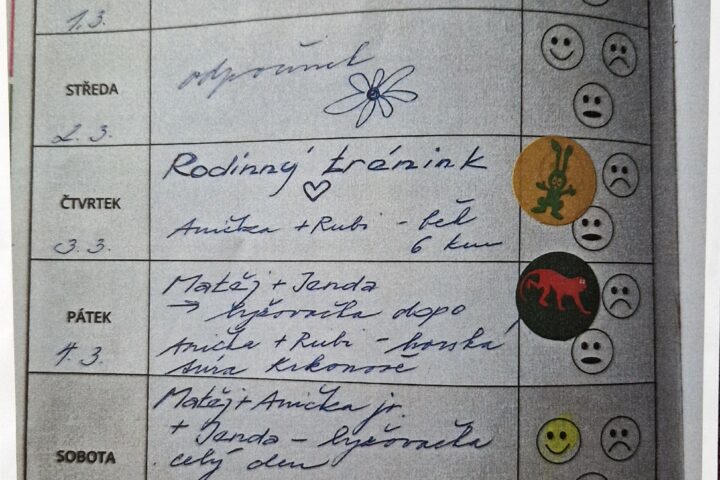 1.3.
STŘEDA
odpočinek
2. 3.
ČTVRTEK
Rodinný trénink
Anička + Rubi - běh
6 km
3. 3.
PÁTEK
Matěj + Jenda
→ lyžovačka dopo
Anička + Rubi - horská
túra Krkonoše
4. 3.
SOBOTA
Matěj + Anička jr.
+ Jenda - lyžovačka
celý den